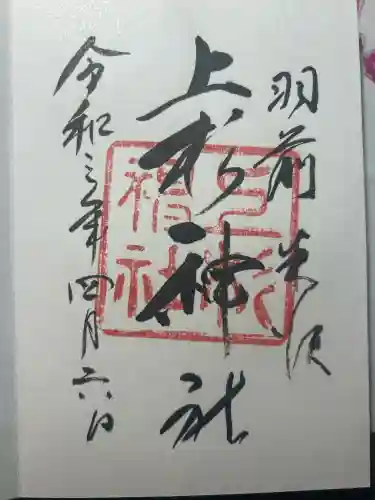 羽前米沢
上杉神社
上杉神社
令和三年四月六日